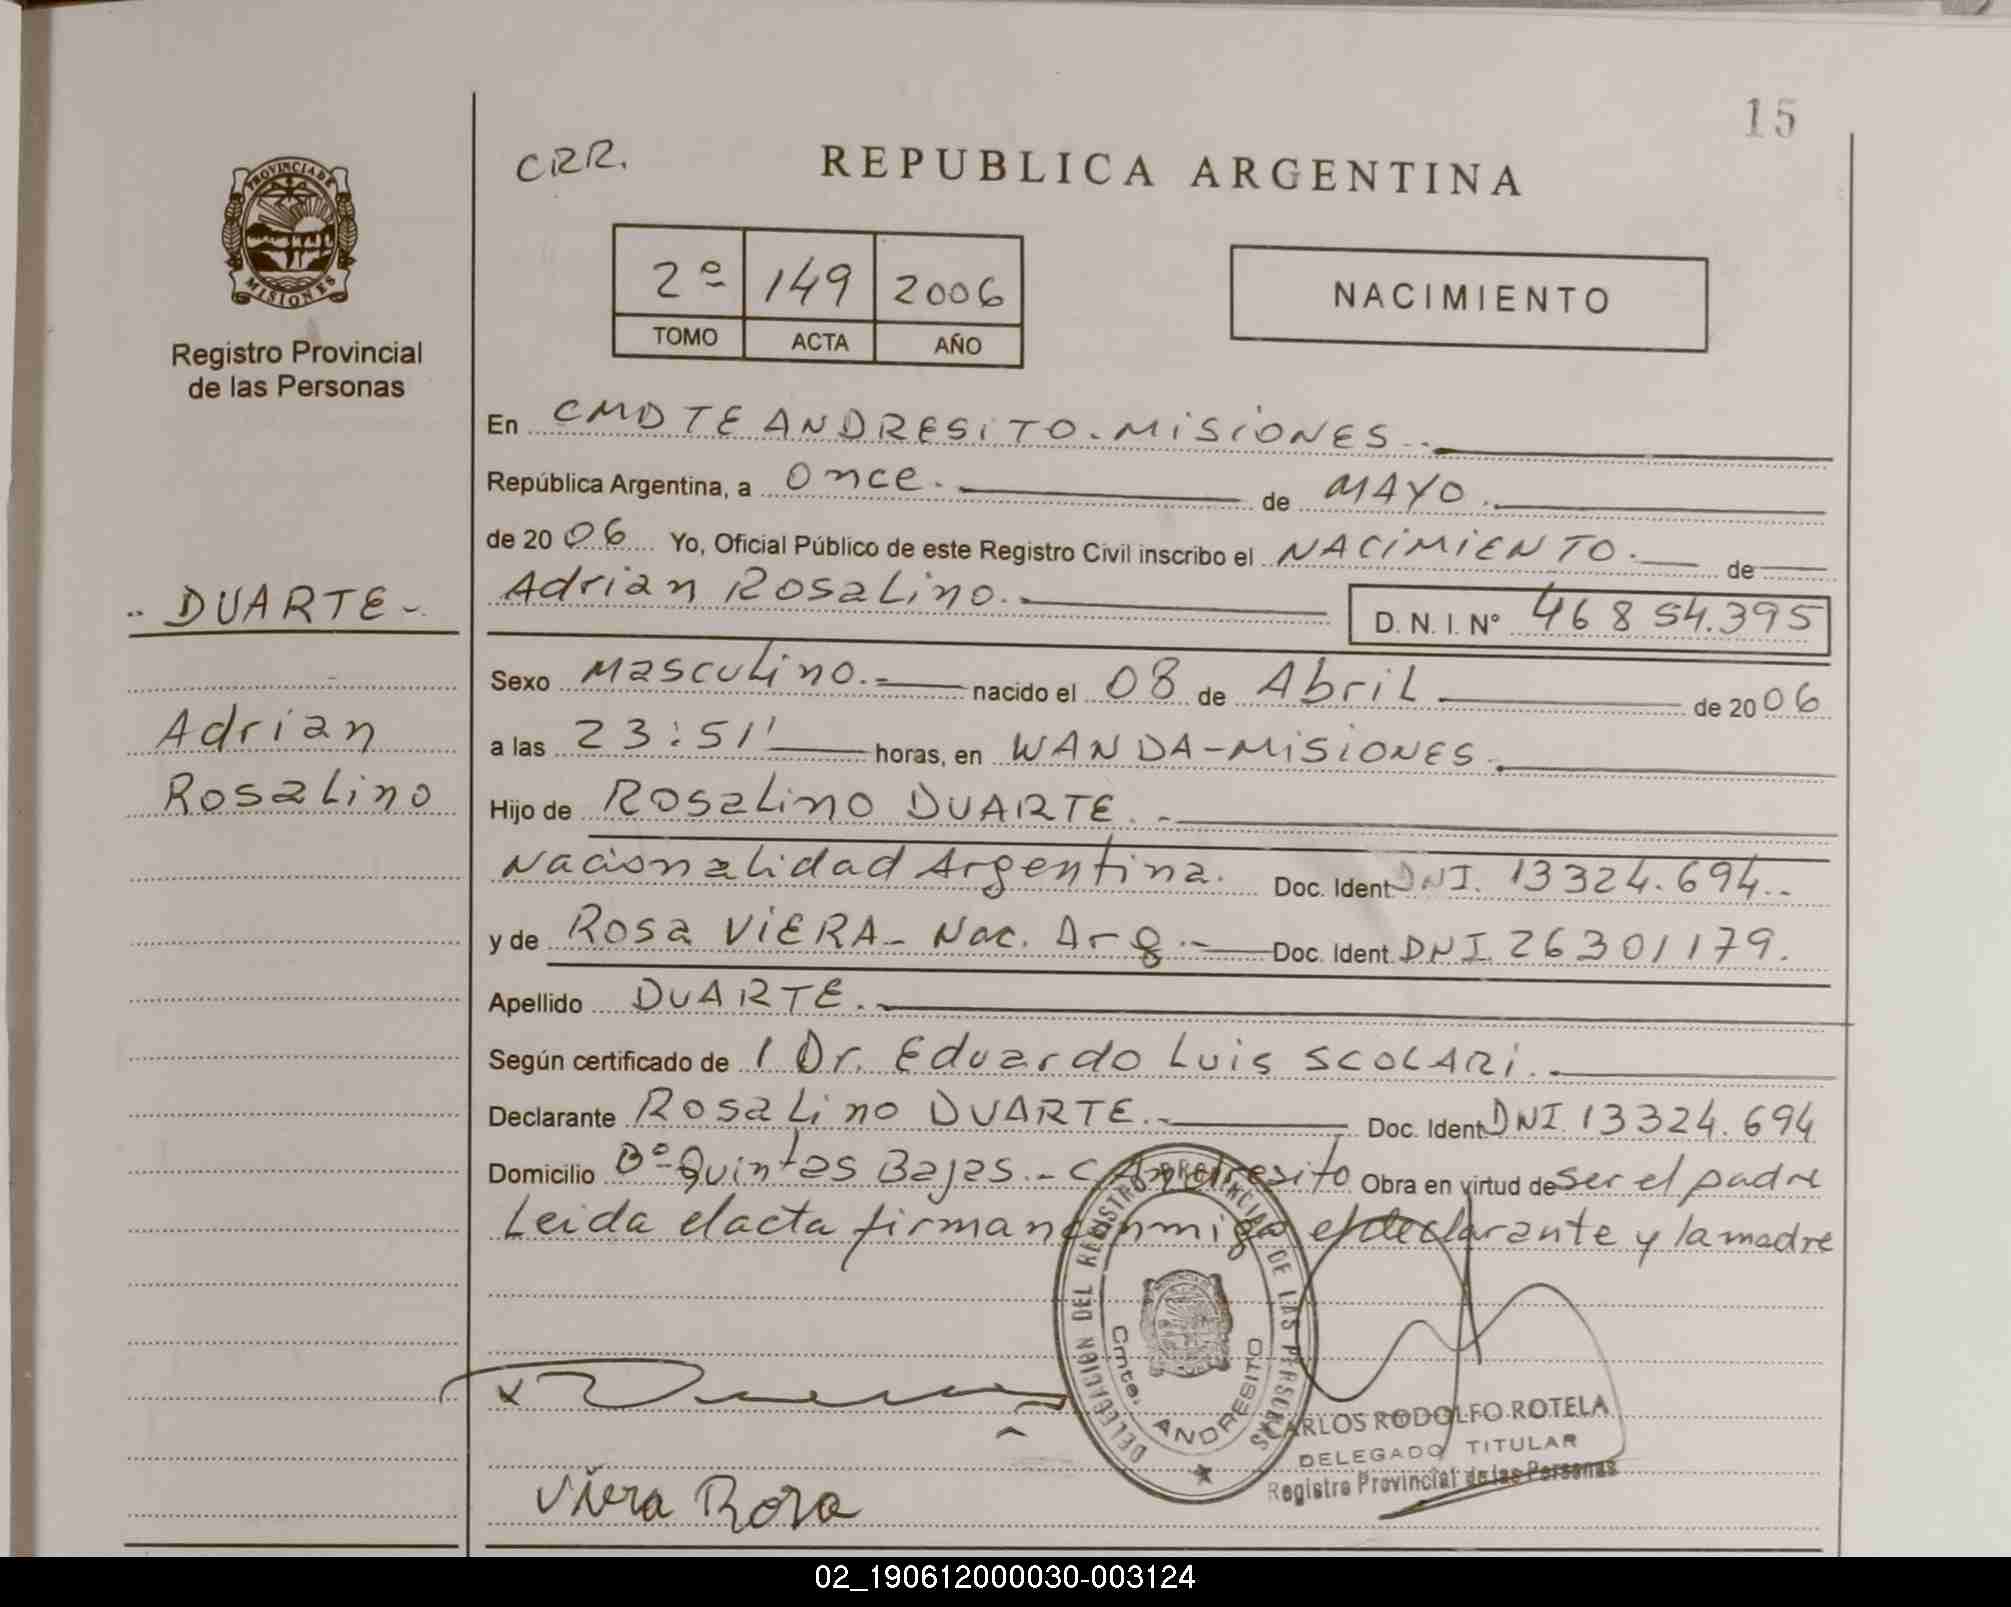 15
CRR.
REPUBLICA ARGENTINA
PROVINCIA DE
MISIONES
Registro Provincial
de las Personas
2º 149 2006
TOMO ACTA AÑO
NACIMIENTO
En CMDTE ANDRESITO. MISIONES.
República Argentina, a Once. de MAYO.
de 2006 Yo, Oficial Público de este Registro Civil inscribo el NACIMIENTO. de
.. DUARTE -
Adrian
Rosalino
Adrian Rosalino. D. N. I. Nº 46854.395
Sexo Masculino. nacido el 08 de Abril de 2006
a las 23:51' horas, en WANDA - MISIONES.
Hijo de Rosalino DUARTE.
Nacionalidad Argentina. Doc. Ident. DNI. 13324.694..
y de Rosa VIERA - Nac. Arg. - Doc. Ident. DNI. 26301179.
Apellido DUARTE.
Según certificado de 1 Dr. Eduardo Luis SCOLARI.
Declarante Rosalino DUARTE. Doc. Ident. DNI. 13324.694
Domicilio Bº Quintas Bajas. - C. Andresito Obra en virtud de ser el padre
Leida el acta firman conmigo el declarante y la madre
DELEGACION DEL REGISTRO PROVINCIAL DE LAS PERSONAS
Cmte. ANDRESITO
CARLOS RODOLFO ROTELA
DELEGADO TITULAR
Registro Provincial de las Personas
x
Viera Rosa
02_190612000030-003124